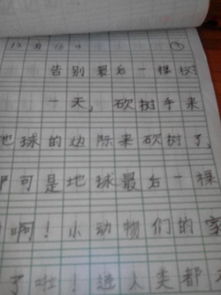 12月1 日 ③
告别最后一棵树
一天,砍树手来
地球的边际来砍树了,
那可是地球最后一棵
啊!小动物们的家
了啦!连人类都